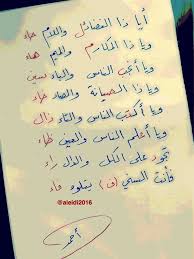 أيا ذا الفضائل واللام حاء
ويا ذا المكارم والميم هاء
ويا أنجب الناس والباء سين
ويا ذا الصيانة والصاد خاء
ويا أكتب الناس والتاء ذال
ويا أعلم الناس والعين ظاء
تجود على الكل والدال راء
فأنت السخي يتلوه فاء
@aleidi2016